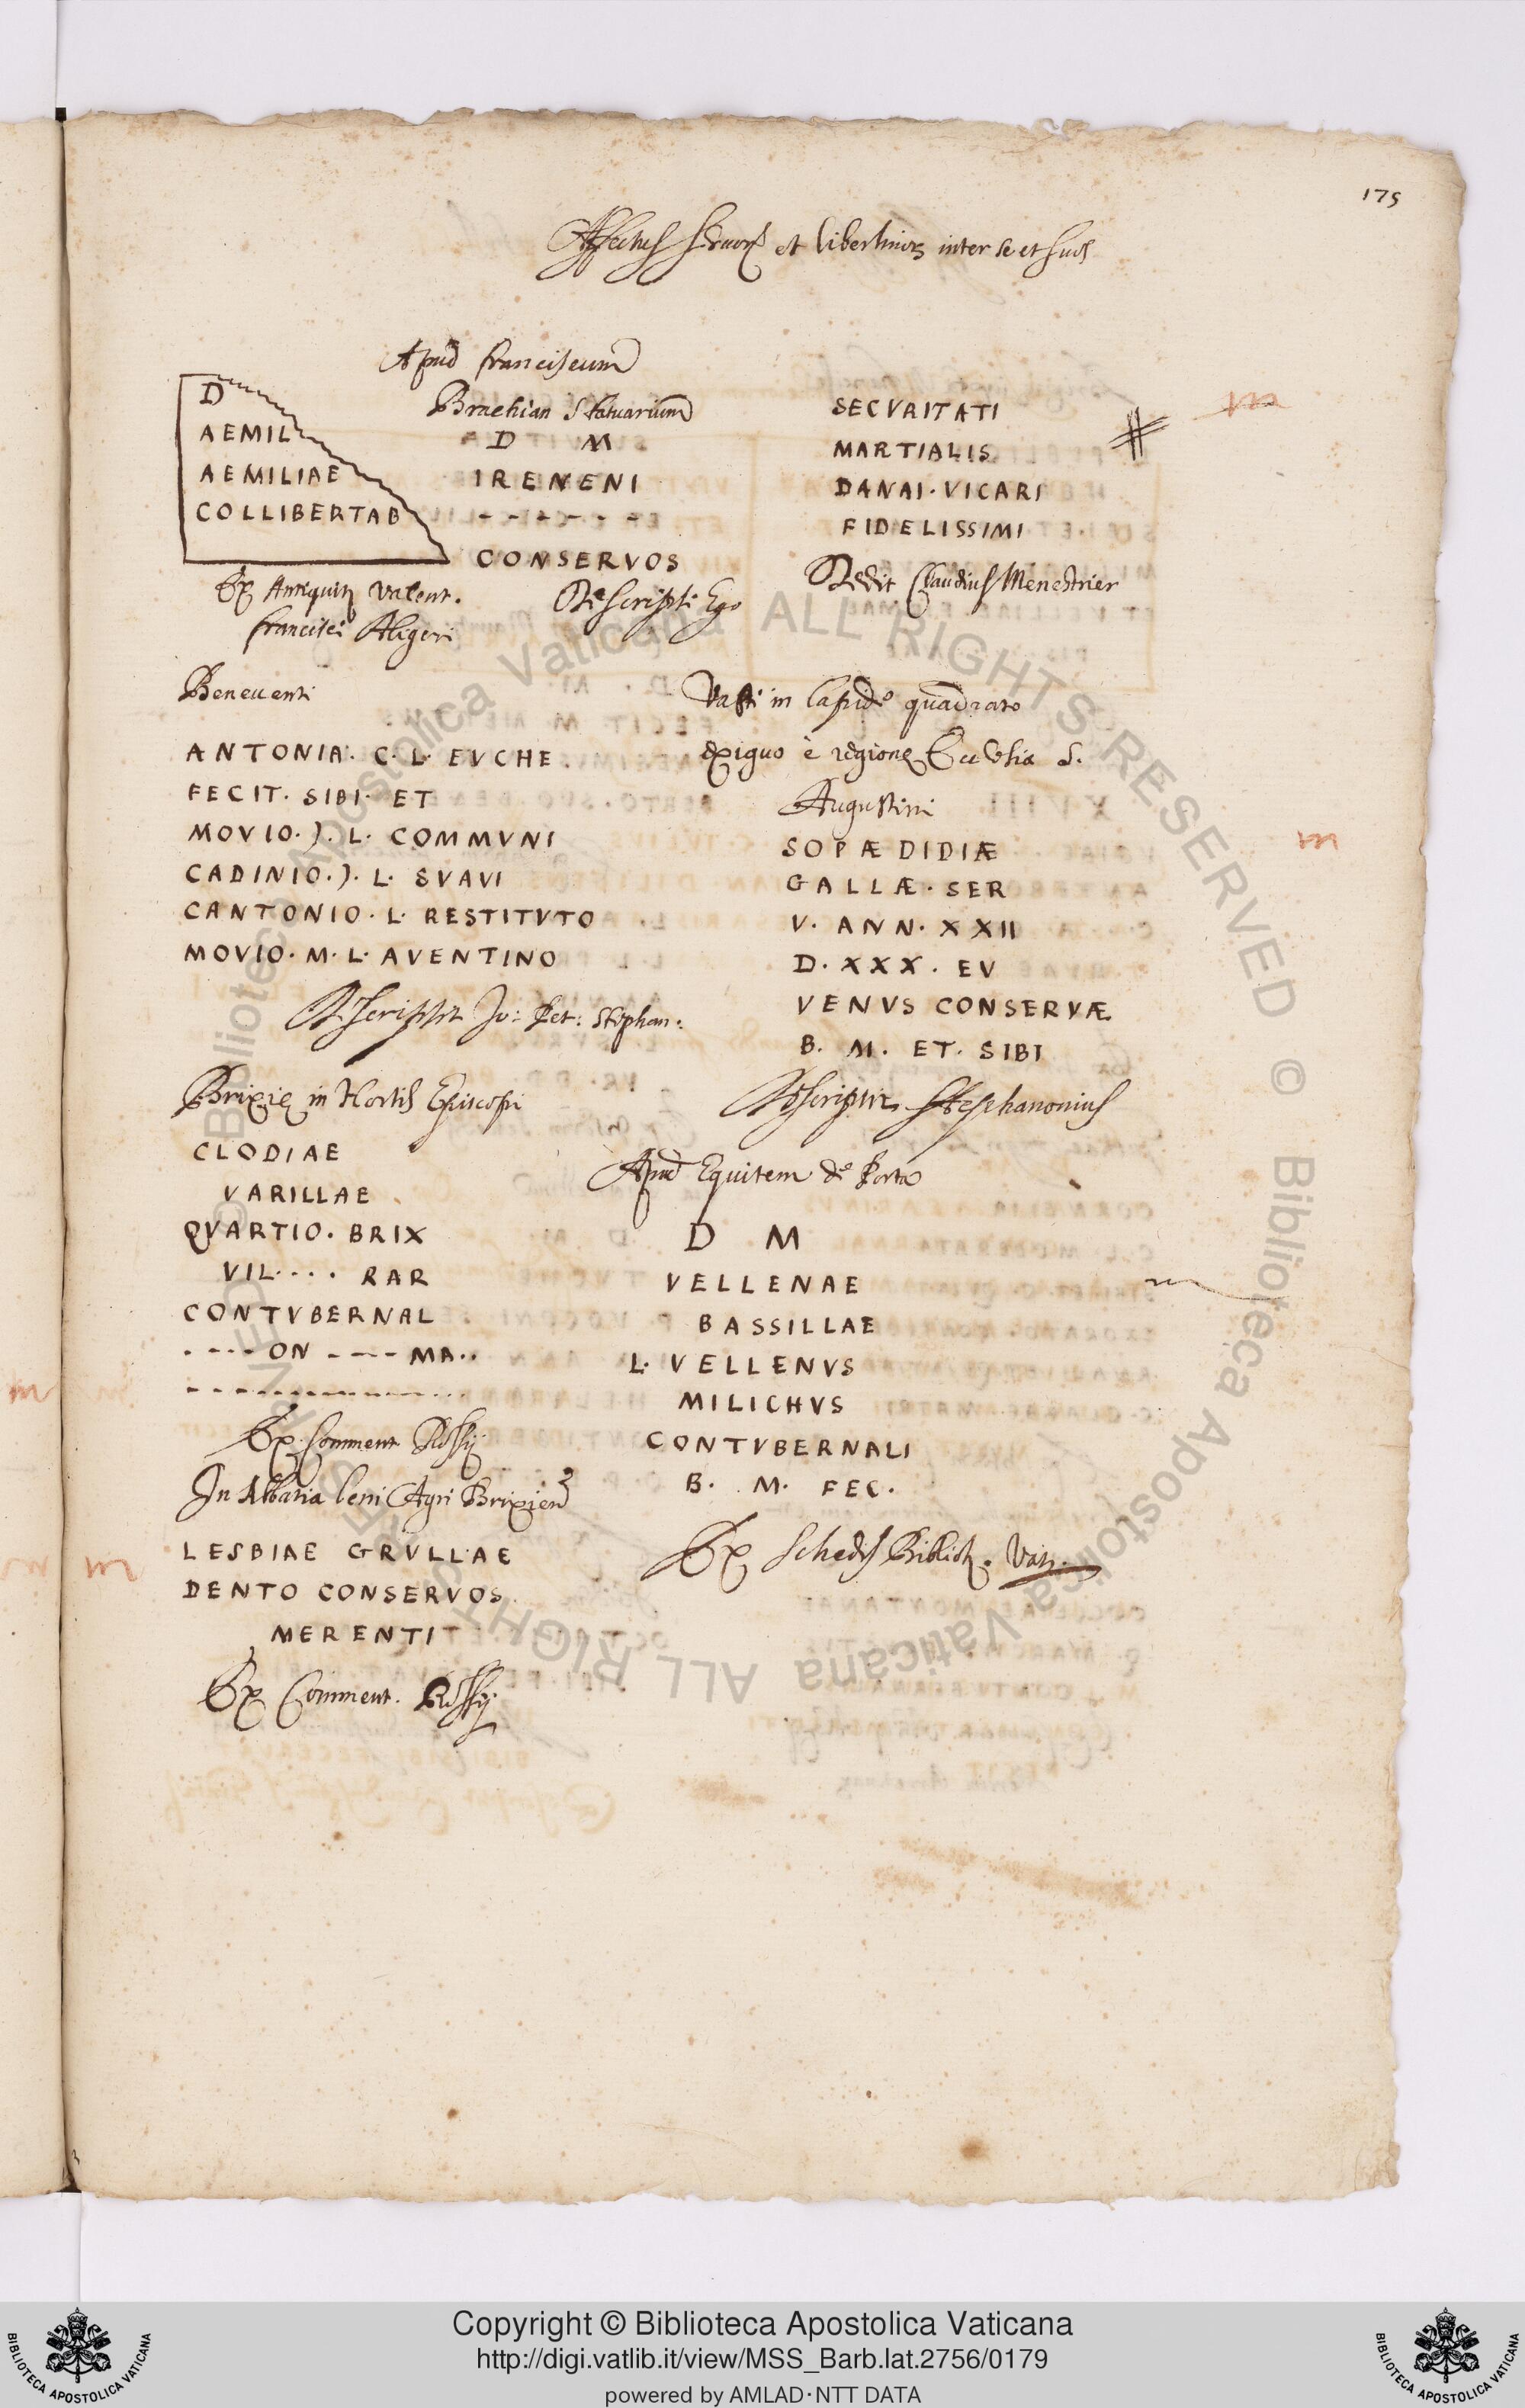 175
Affectus seruorũ et libertinorũ inter se et suos
D
AEMIL
AEMILIAE
COLLIBERTAB
Ex Antiquit Valent.
Francisci Aligeri
Apud Franciscum
Brachian Statuarium
D M
IRENENI
- - - - - - -
CONSERVOS
Descripsi Ego
SECVRITATI
MARTIALIS
DANAI · VICARI
FIDELISSIMI
Dedit Claudius Menestrier
Beneuenti
ANTONIA · C · L · EVCHE
FECIT · SIBI · ET
MOVIO · ) · L · COMMVNI
CADINIO · ) · L · SVAVI
CANTONIO · L · RESTITVTO
MOVIO · M · L · AVENTINO
Descripsit Jo: Pet: Stephan:
Vasti in lapide quadrato
exiguo è regione Ecclesiæ S.
Augustini
SOPÆ DIDIÆ
GALLÆ · SER
V · ANN · XXII
D · XXX · EV
VENVS CONSERVÆ
B · M · ET · SIBI
Descripsit Stephanonius
Brixie in Hortis Episcopi
CLODIAE
VARILLAE
QVARTIO · BRIX
VIL · · · · RAR
CONTVBERNAL
- - - - ON - - - - MA · ·
- - - - - - - - - - - - - - -
Ex Comment Rossij
Apud Equitem de Porta
D M
VELLENAE
BASSILLAE
L · VELLENVS
MILICHVS
CONTVBERNALI
B · M · FEC ·
Ex Schedis Biblioth. Vat.
In Abbatia leni Agri Brixien
LESBIAE GRVLLAE
DENTO CONSERVOS
MERENTI
Ex Comment. Rossij
© Biblioteca Apostolica Vaticana ALL RIGHTS RESERVED © Biblioteca Apostolica Vaticana ALL RIGHTS RESERVED
Copyright © Biblioteca Apostolica Vaticana
http://digi.vatlib.it/view/MSS_Barb.lat.2756/0179
powered by AMLAD·NTT DATA
BIBLIOTECA APOSTOLICA VATICANA
BIBLIOTECA APOSTOLICA VATICANA